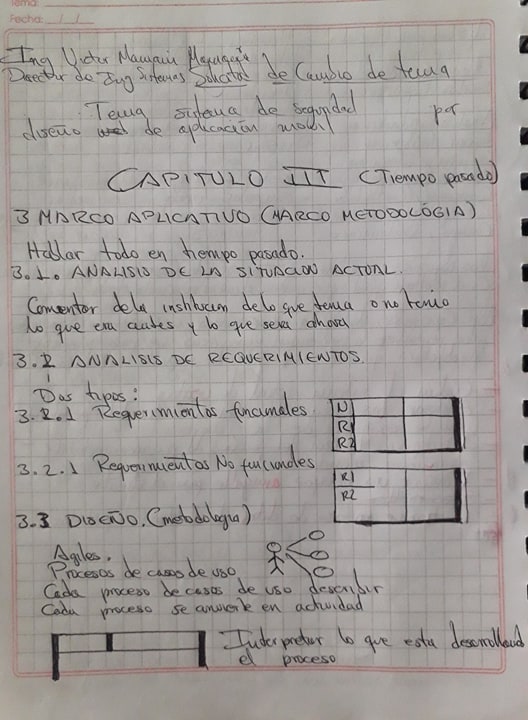 Tema:
Fecha: / /
Ing Victor Mamani
Director de Ing Sistemas Solicitud de Cambio de tema
Tema sistema de seguridad por
diseño web de aplicación movil
CAPITULO III (Tiempo pasado)
3 MARCO APLICATIVO (MARCO METODOLOGIA)
Hablar todo en tiempo pasado.
3.1. ANALISIS DE LA SITUACION ACTUAL.
Comentar de la institucion de lo que tenia o no tenia
lo que era antes y lo que sera ahora
3.2 ANALISIS DE REQUERIMIENTOS.
Dos tipos:
3.2.1 Requerimientos funcionales
N
R1
R2
3.2.1 Requerimientos No funcionales
R1
R2
3.3 DISEÑO. (metodologia)
Agiles.
Procesos de casos de uso
Cada proceso de casos de uso describir
Cada proceso se convierte en actividad
Interpretar lo que esta desarrolland
el proceso